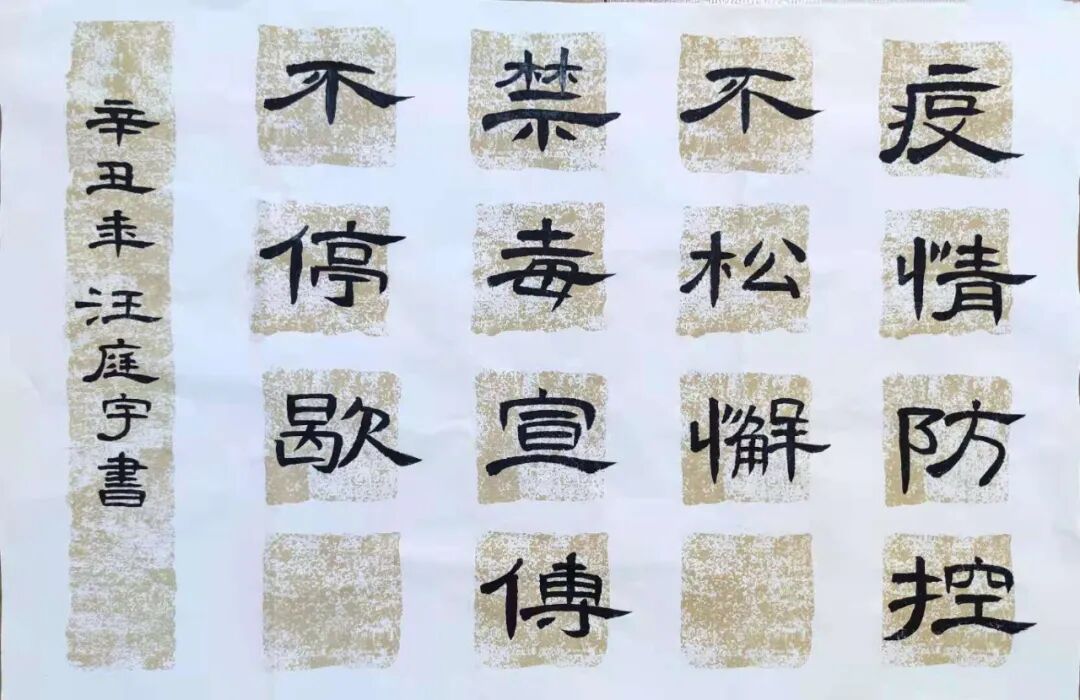 疫情防控
不松懈
禁毒宣傳
不停歇
辛丑年汪庭宇書